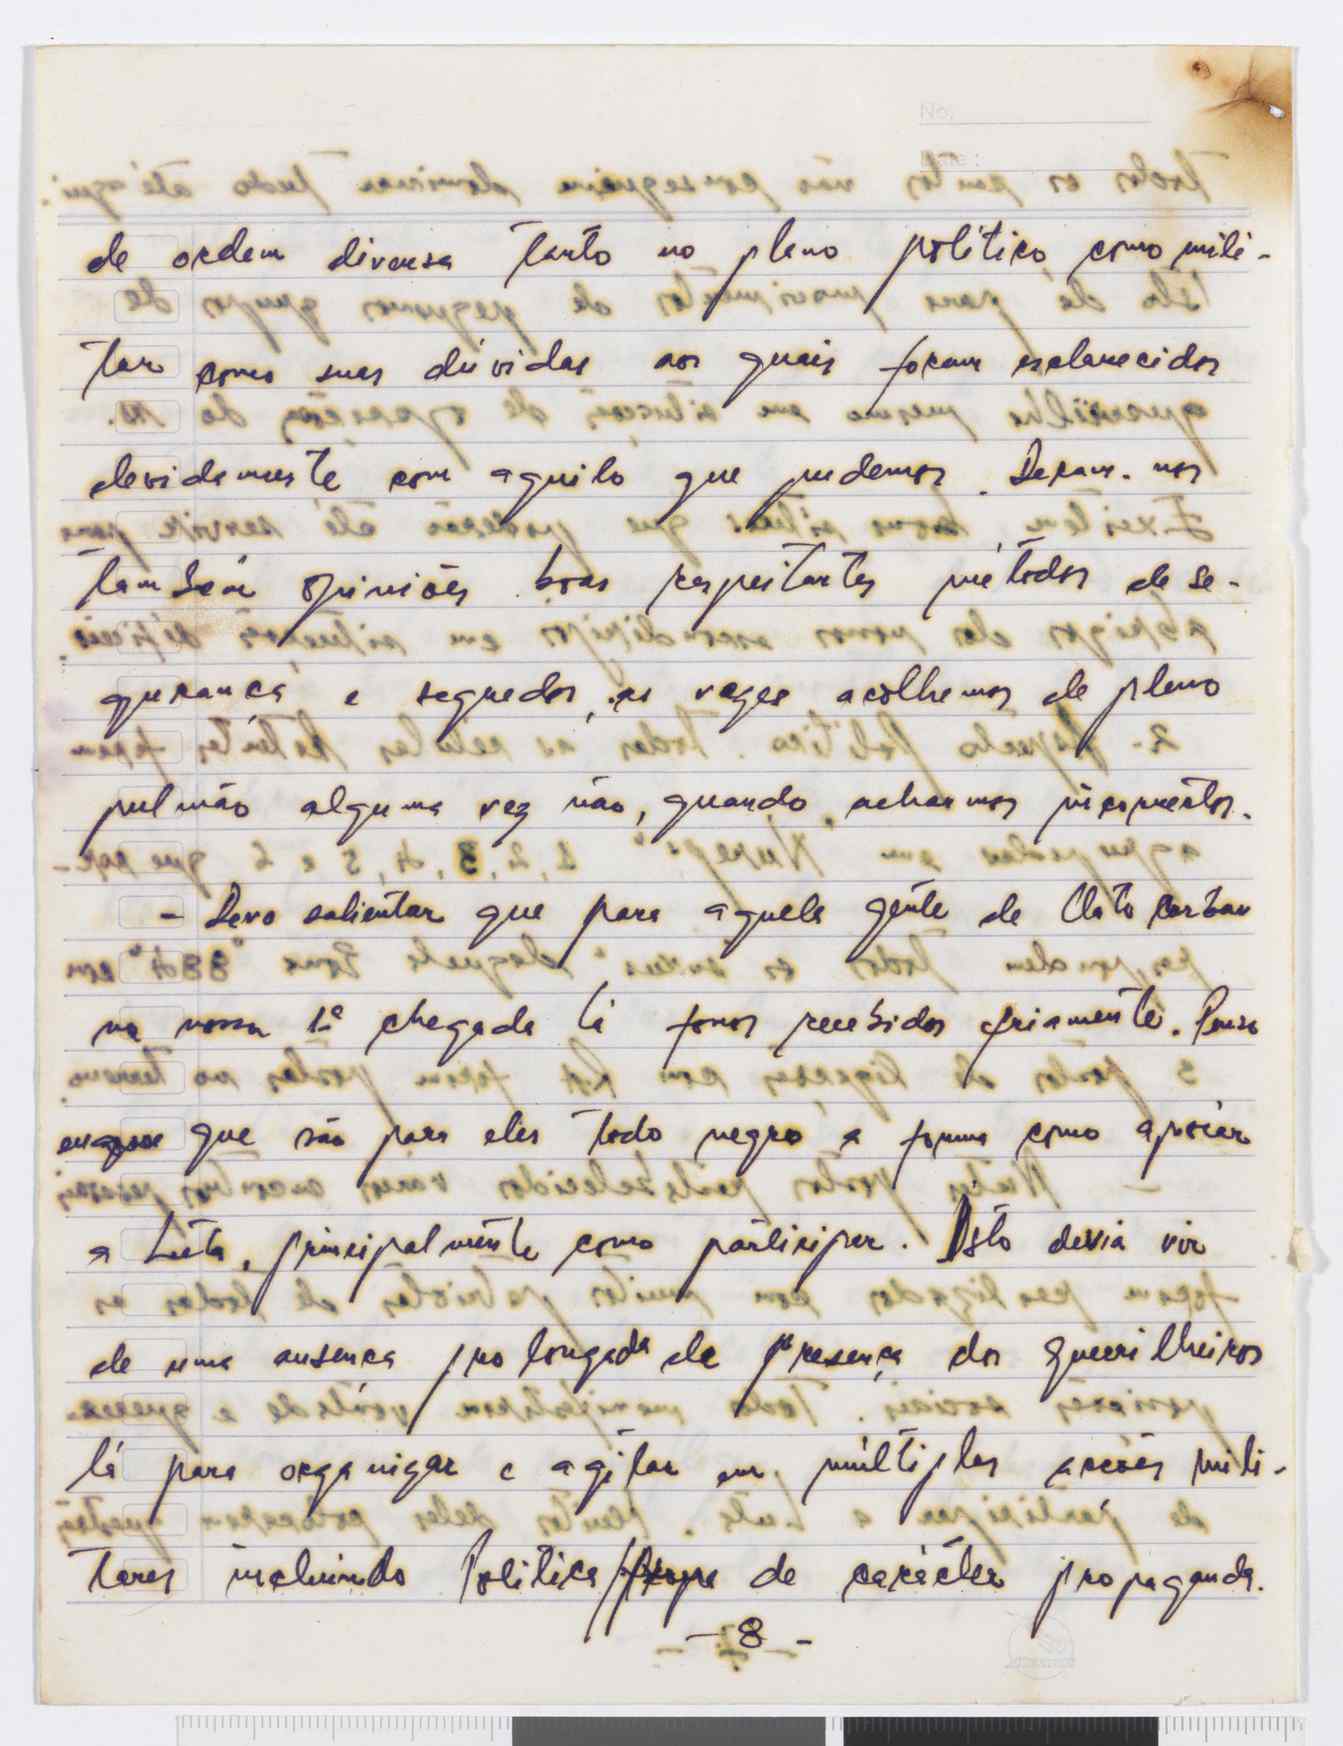 No.
Date:
de ordem diversa tanto no plano político como mili-
tar como suas dúvidas aos quais foram esclarecidos
devidamente com aquilo que pudemos. Deram-nos
também opiniões boas respeitantes métodos de se-
gurança e seguedos, as vezes acolhemos de pleno
pulmão alguma vez não, quando achamos incorrectos.
- Devo salientar que para aquela gente de Uato Carbau
na nossa 1ª chegada lá fomos recebidos friamente. Penso
que são para eles todo negro a forma como apoiar
a Luta, principalmente como participar. Isto devia vir
de uma ausença prolongada de presença dos guerrilheiros
lá para organizar e agitar em múltiplas acções mili-
tares incluindo Politica de carácter propaganda.
- 8 -